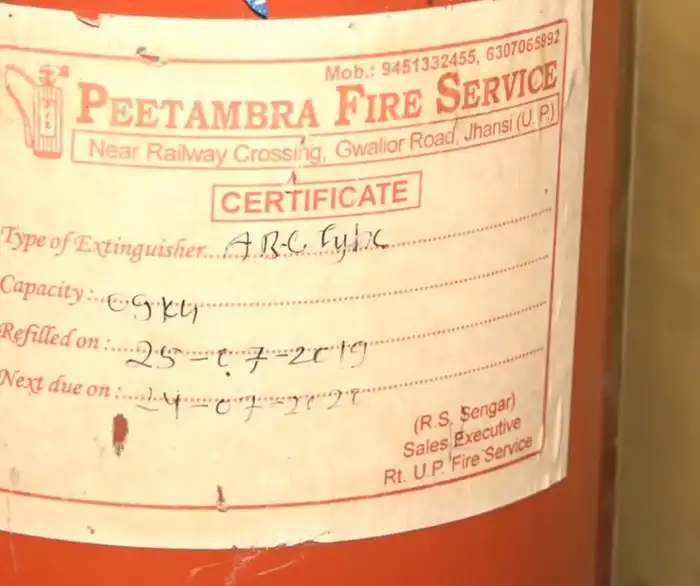 Mob.: 9451332455, 6307065992
PEETAMBRA FIRE SERVICE
Near Railway Crossing, Gwalior Road, Jhansi (U.P.)
CERTIFICATE
Type of Extinguisher...ABC
Capacity :
Refilled on : 25-07-2019
Next due on : 24-07-2020
(R.S. Sengar)
Sales Executive
Rt. U.P. Fire Service